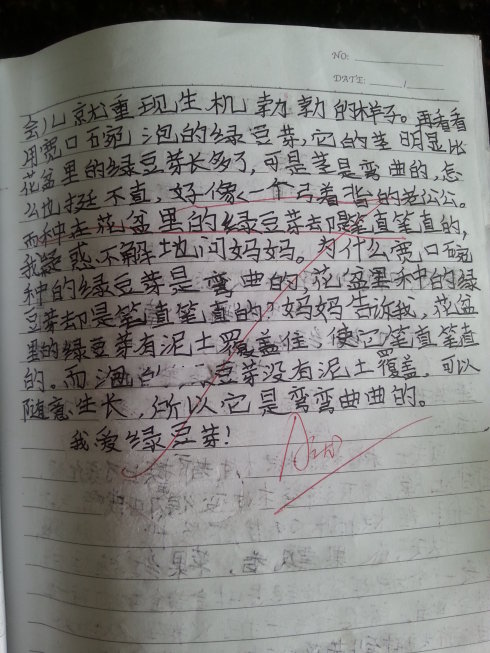 NO:
DATE: /
会儿就重现生机勃勃的样子。再看看
用宽口碗泡的绿豆芽,它的茎明显比
花盆里的绿豆芽长多了,可是茎是弯曲的,怎
么也挺不直,好像一个弓着背的老公公。
而种在花盆里的绿豆芽却是笔直笔直的,
我疑惑不解地问妈妈。为什么宽口碗
种的绿豆芽是弯曲的,花盆里种的绿
豆芽却是笔直笔直的?妈妈告诉我,花盆
里的绿豆芽有泥土覆盖住,使它笔直笔直
的。而泡 豆芽没有泥土覆盖,可以
随意生长,所以它是弯弯曲曲的。
我爱绿豆芽!